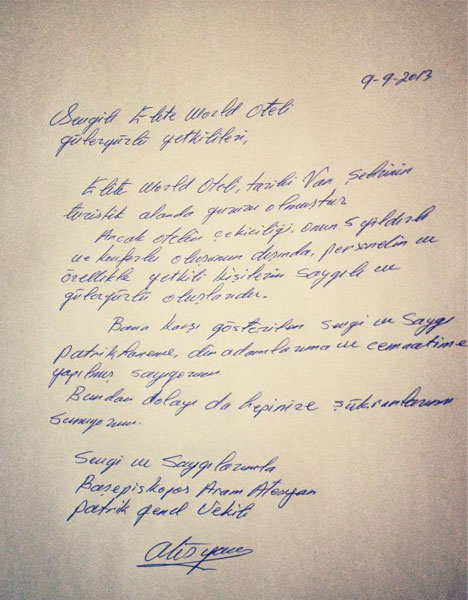 9-9-2013
Sevgili Elite World Oteli
güleryüzlü yetkilileri,
Elite World Oteli, tarihi Van Şehrinin
turistik alanda yüzünü olmuştur
Ancak otelin çekiciliği, onun 5 yıldızlı
ve konforlu oluşunun dışında, personelin ve
özellikle yetkili kişilerin saygılı ve
güleryüzlü oluşlarıdır.
Bana karşı gösterilen sevgi ve Saygı
Patrikhaneme, din adamlarıma ve cemaatime
yapılmış sayıyorum
Bundan dolayı da hepinize şükranlarımı
sunuyorum.
Sevgi ve Saygılarımla
Başepiskopos Aram Ateşyan
Patrik Genel Vekili
Ateşyan